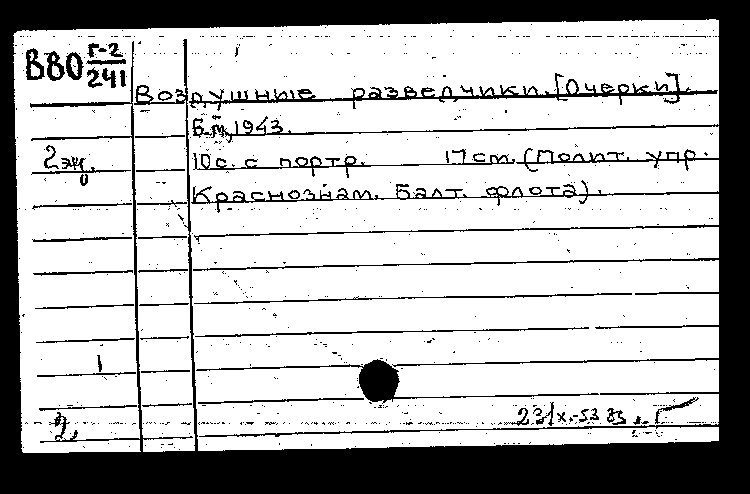 ВВО Г-2
241
Воздушные разведчики. [Очерки].
Б.м., 1943.
2 эк.
10 с. с портр. 17 см. (Полит. упр.
Краснознам. Балт. флота).
1
2,